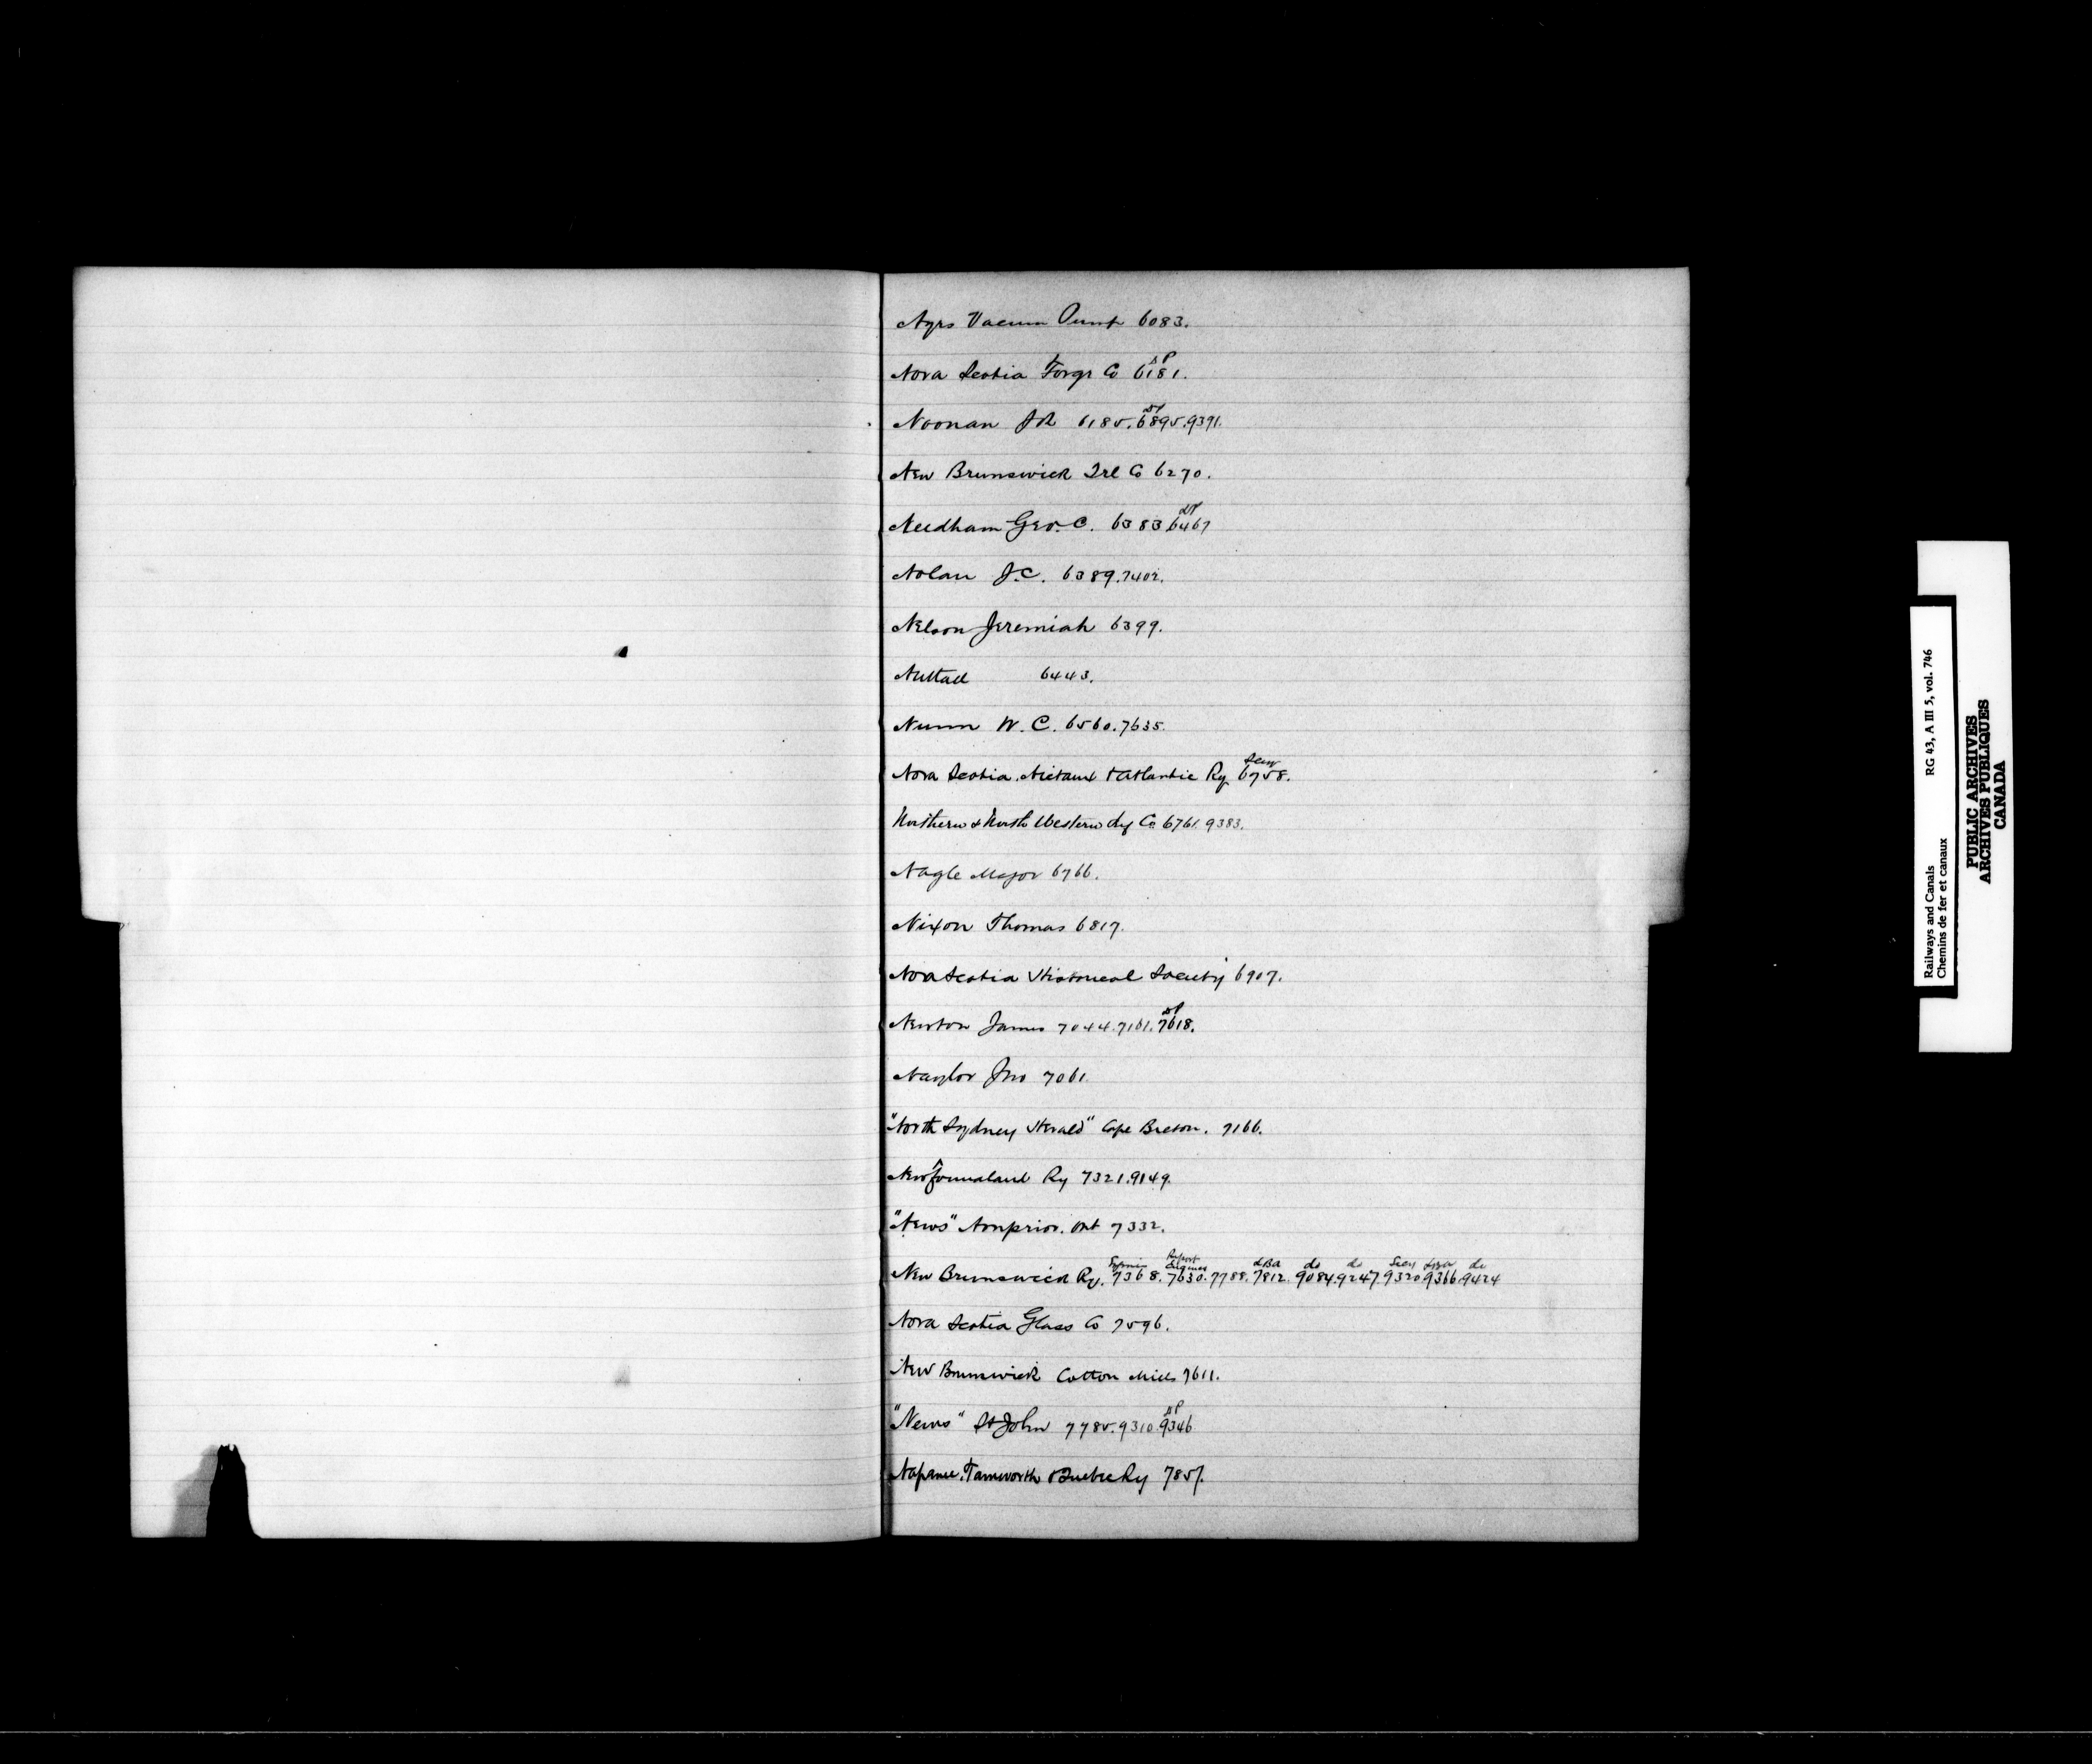 Nova Scotia Forge Co 6181.
Noonan J R 6185. 6895. 9391.
New Brunswick Co 6270.
Needham Geo. C. 6383 6467
Nolan J. C. 6389. 7402.
Nelson Jeremiah 6399.
Nuttall 6443.
Nunn W. C. 6560. 7635.
Nova Scotia, Nictaux & Atlantic Ry 6758.
Northern & North Western Ry Co. 6761. 9383.
Nagle Major 6766.
Nixon Thomas 6817.
Nova Scotia Historical Society 6907.
Newton James 7044. 7161. 7618.
Naylor Jno 7061.
"North Sydney Herald" Cape Breton. 7166.
Ry 7321. 9149.
"News" Arnprior. Ont 7332.
Report
New Brunswick Ry. 7368. 7630. 7788. 7812. 9084. 9247. 9320 9366 9424
Nova Scotia Glass Co 7596.
New Brunswick Cotton Mills 7611.
"News" St John 7785. 9310. 9346
Napanee, Tamworth & Quebec Ry 7857.
Railways and Canals RG 43, A III 5, vol. 746
Chemins de fer et canaux
PUBLIC ARCHIVES
ARCHIVES PUBLIQUES
CANADA